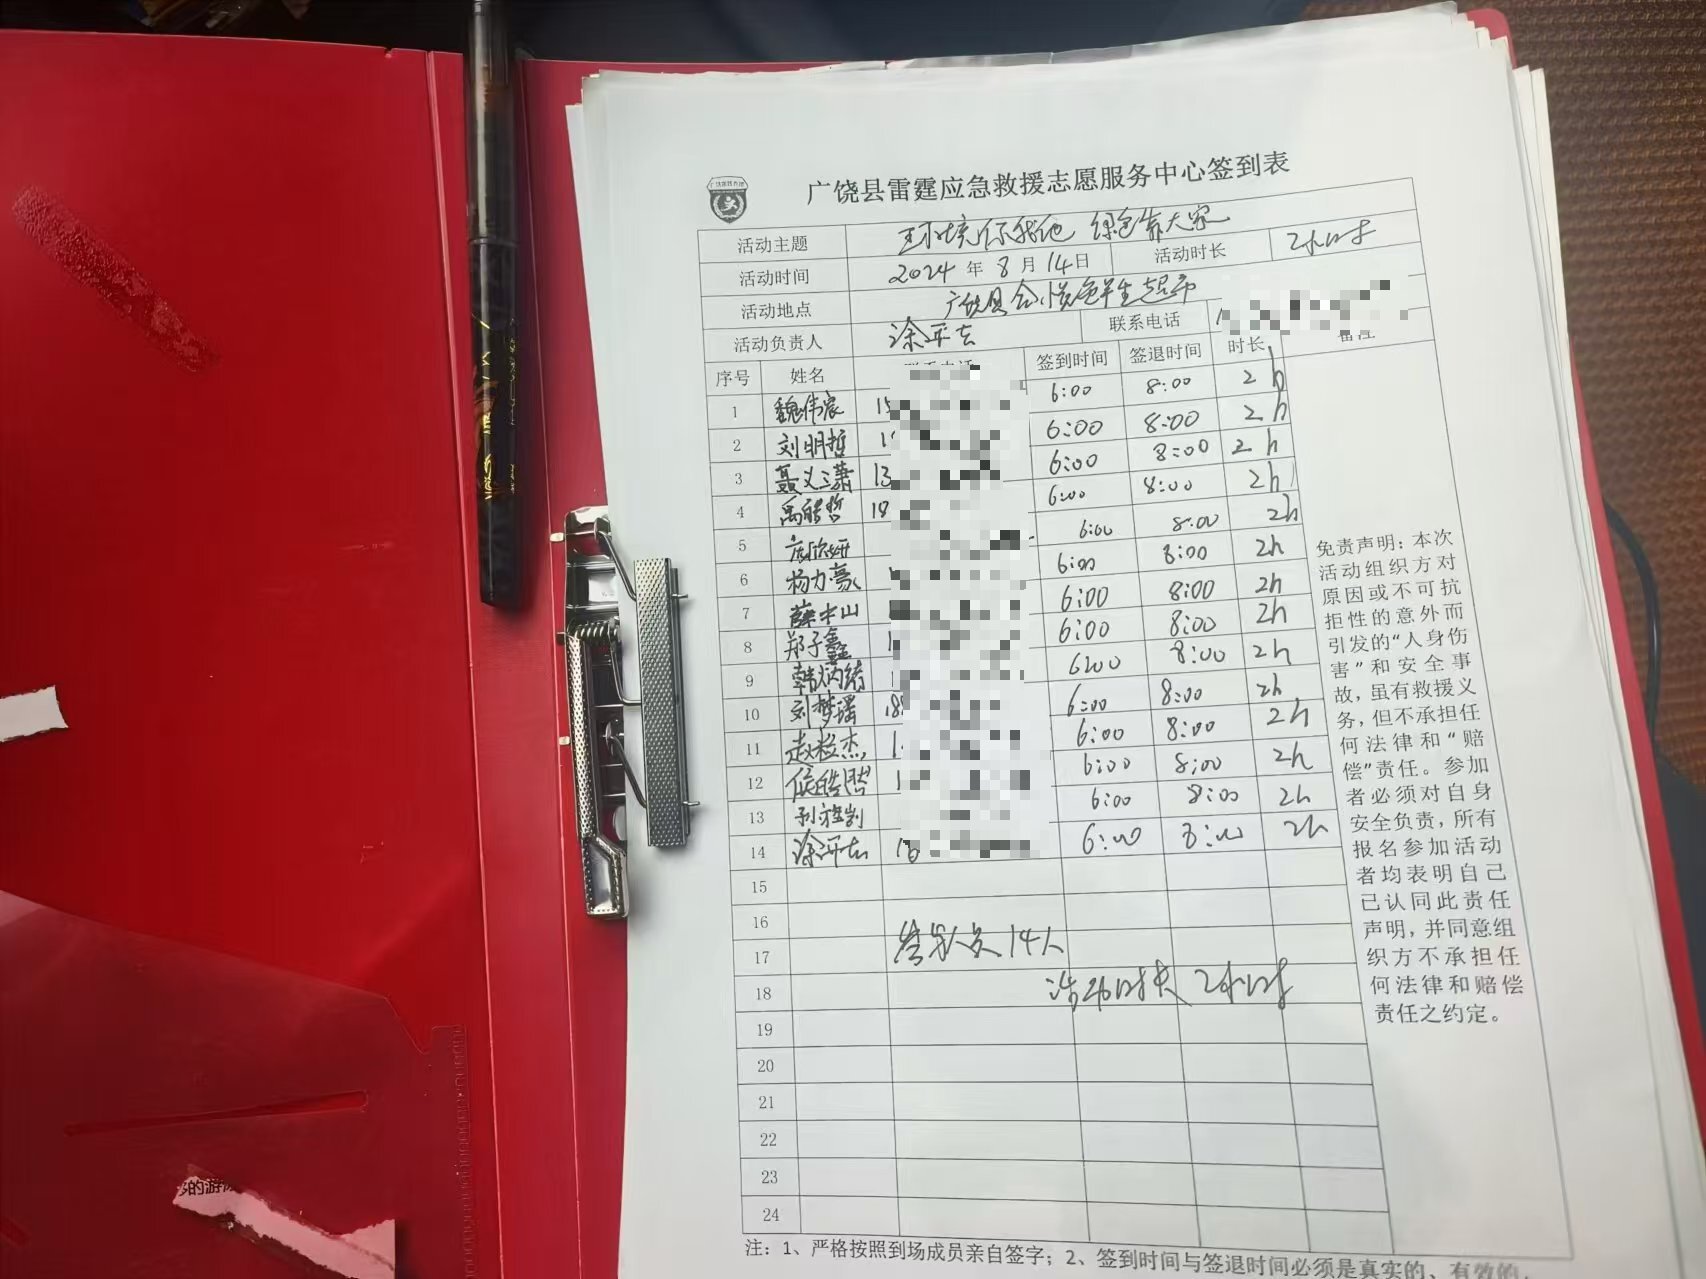 广饶县雷霆应急救援志愿服务中心签到表
活动主题 环境你我他 绿色靠大家
活动时间 2024年8月14日 活动时长 2小时
活动地点 广饶县 超市
活动负责人 涂平 联系电话
序号 姓名 签到时间 签退时间 时长 备注
1 魏伟宸 15 6:00 8:00 2h
2 刘明哲 1 6:00 8:00 2h
3 聂义潇 13 6:00 8:00 2h
4 禹皓哲 18 6:00 8:00 2h
5 6:00 8:00 2h
6 杨力豪 6:00 8:00 2h
7 薛中山 6:00 8:00 2h
8 郑子鑫 1 6:00 8:00 2h
9 韩炳绪 6:00 8:00 2h
10 刘梦瑶 18 6:00 8:00 2h
11 赵 杰 1 6:00 8:00 2h
12 侯皓 1 6:00 8:00 2h
13 孙 6:00 8:00 2h
14 涂 18 6:00 8:00 2h
15
16
17 参加人员14人
18 活动时长 2小时
19
20
21
22
23
24
免责声明：本次
活动组织方对
原因或不可抗
拒性的意外而
引发的“人身伤
害”和安全事
故，虽有救援义
务，但不承担任
何法律和“赔
偿”责任。参加
者必须对自身
安全负责，所有
报名参加活动
者均表明自己
已认同此责任
声明，并同意组
织方不承担任
何法律和赔偿
责任之约定。
注：1、严格按照到场成员亲自签字；2、签到时间与签退时间必须是真实的、有效的，
的游